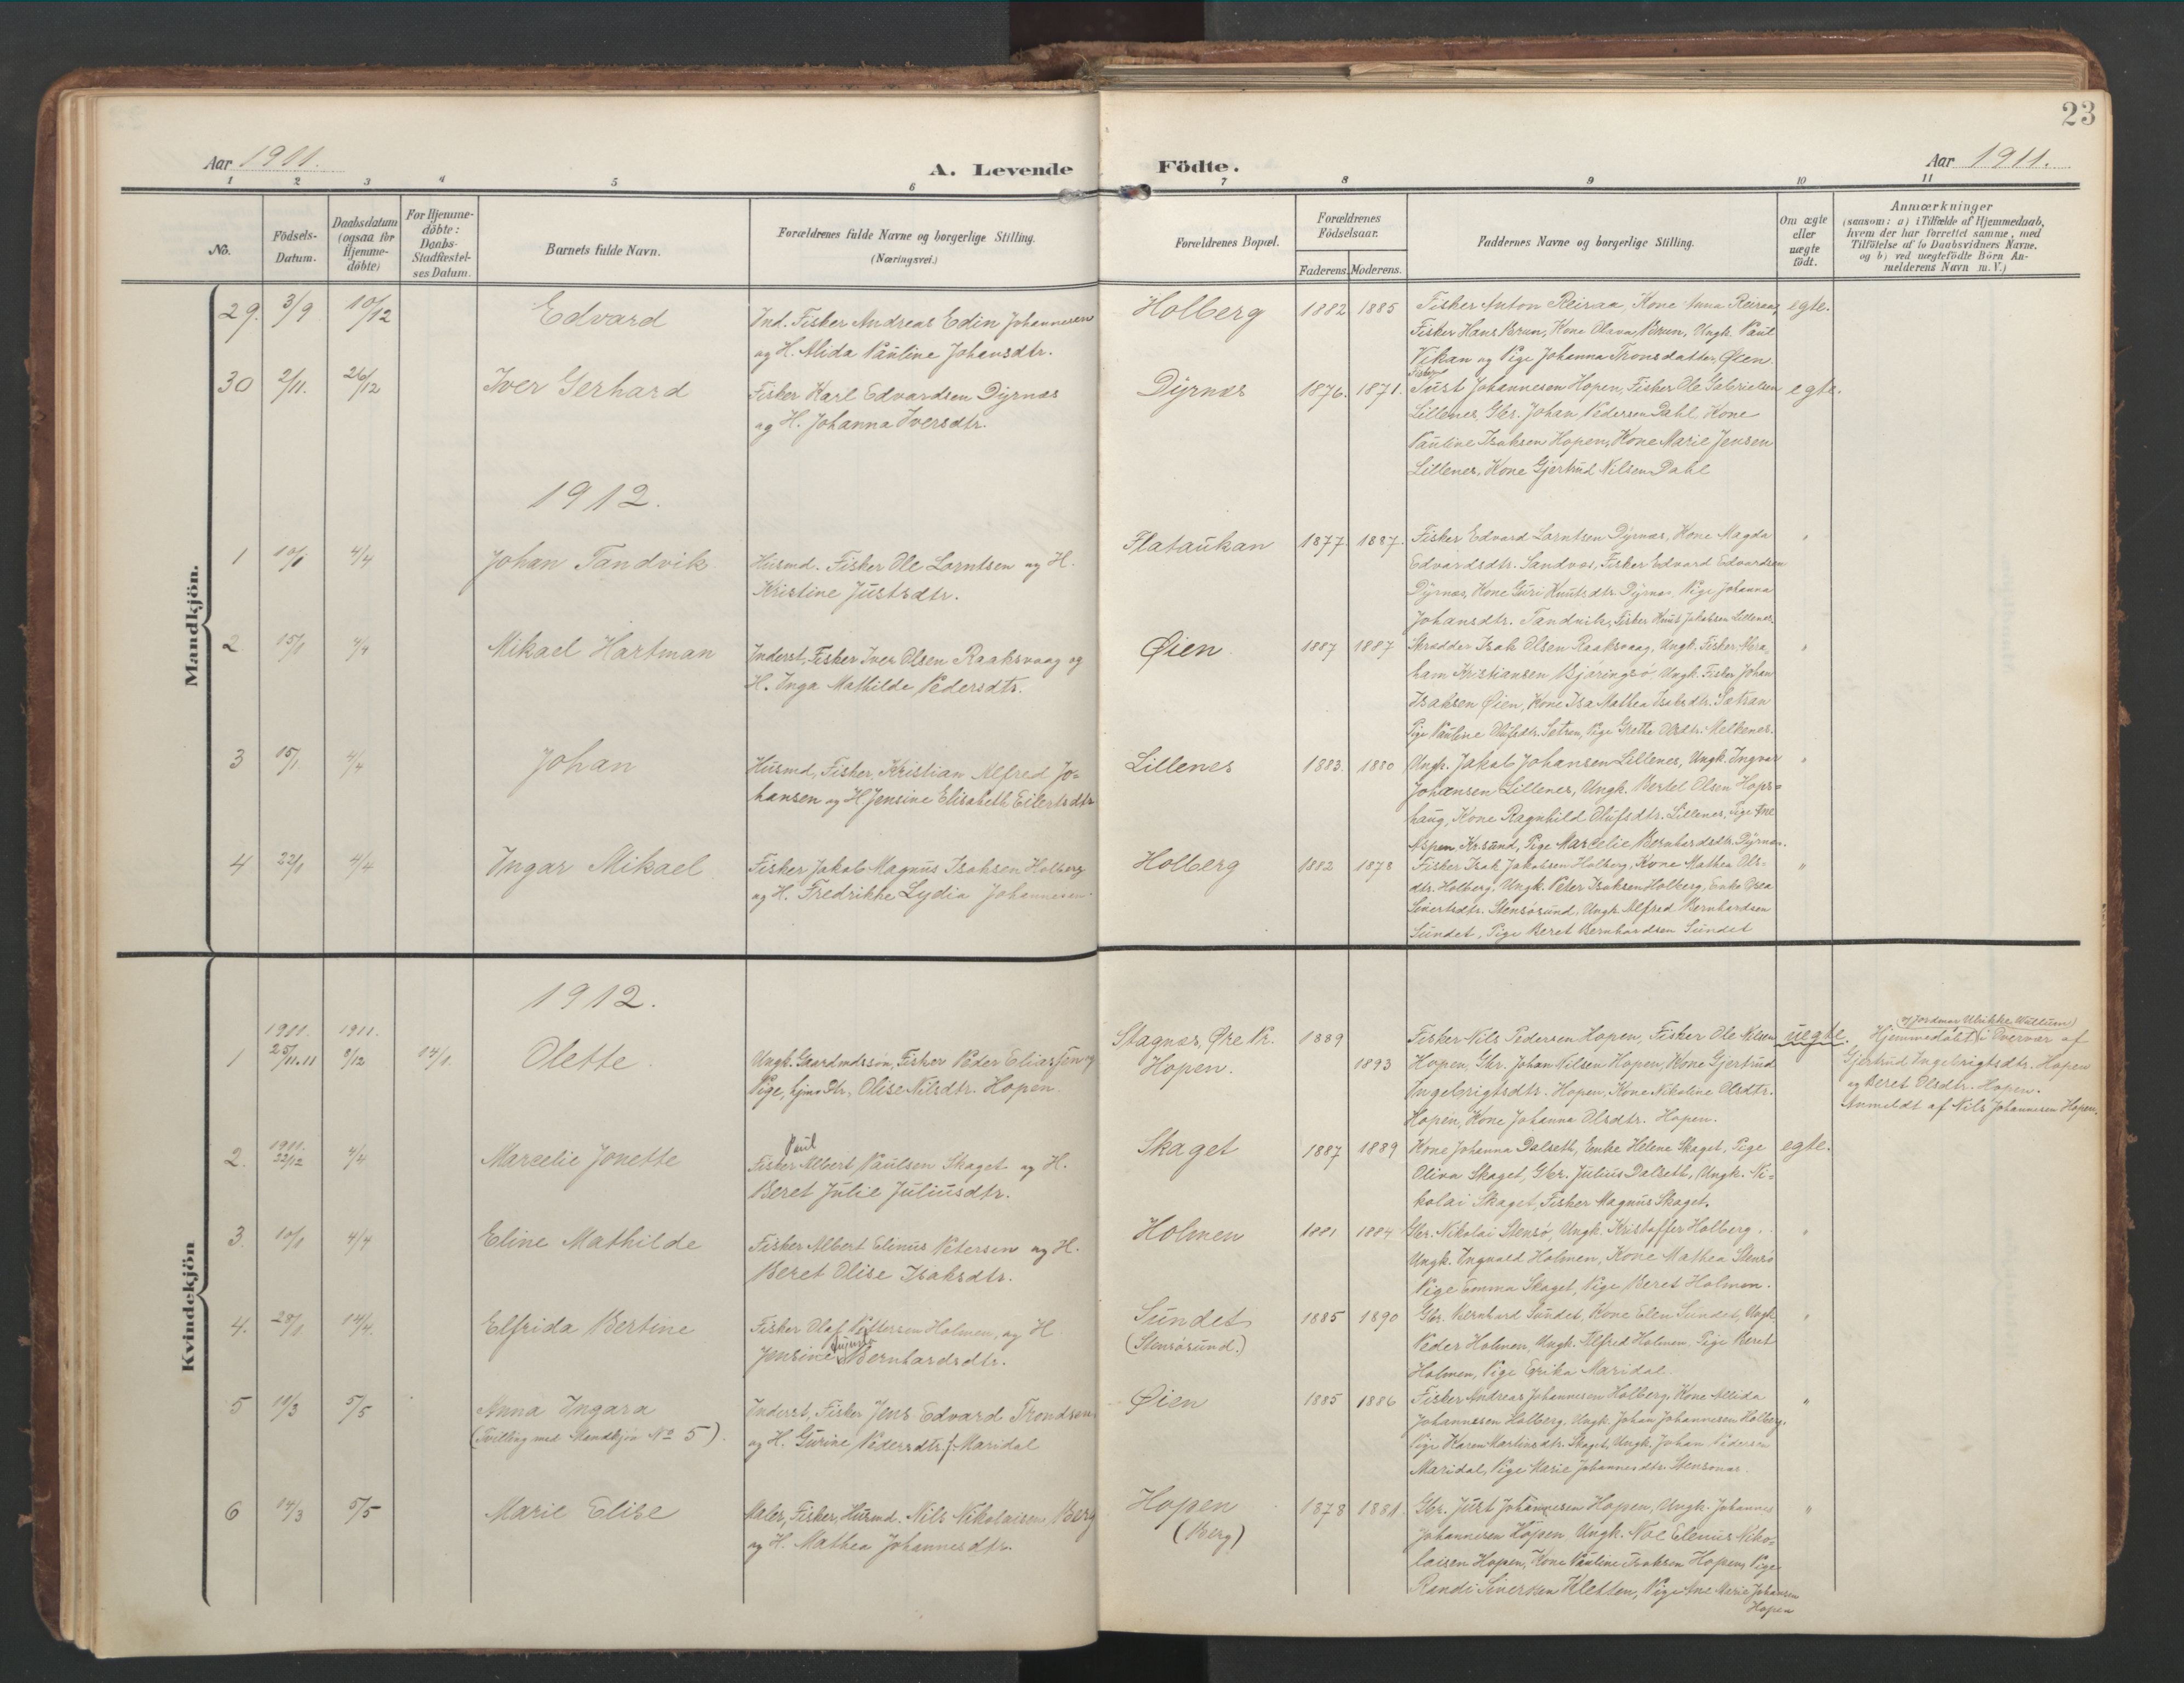 23
Aar 1911.
A. Levende Födte.
Aar 1911.
1 2 3 4 5 6 7 8 9 10 11
No.
Födsels-Datum.
Daabsdatum (ogsaa for Hjemme-döbte)
For Hjemme-döbte: Daabs-Stadfæstel-ses Datum.
Barnets fulde Navn.
Forældrenes fulde Navne og borgerlige Stilling.
(Næringsvei.)
Forældrenes Bopæl.
Forældrenes Födselsaar.
Faderens. Moderens.
Faddernes Navne og borgerlige Stilling.
Om ægte eller uægte födt.
Anmærkninger
(saasom: a) i Tilfælde af Hjemmedaab,
hvem der har forrettet samme, med
Tilföielse af to Daabsvidners Navne.
og b) ved uægtefödte Börn An-
melderens Navn m. V.)
Mandkjön.
29. 3/9 10/12 Edvard
Ind. Fisker Andreas Edin Johannesen
og H. Alida Pauline Johansdtr.
Holberg 1882 1885
Fisker Anton Reiraa, Kone Anna Reiraa, egte.
Fisker Hans Brun, Kone Olava Brun, Ungk. Paul
Vikan og Pige Johanna Tronsdatter Øien.
30 2/11. 26/12 Iver Gerhard
Fisker Karl Edvardsen Dyrnæs
og H. Johanna Iversdtr.
Dyrnæs 1876. 1871.
Fisker
Just Johannesen Hopen, Fisker Ole Gabrielsen egte.
Lillenes, Gbr. Johan Pedersen Dahl, Kone
Pauline Isaksen Hopen, Kone Marie Jensen
Lillenes, Kone Gjertrud Nilsen Dahl
1912.
1 10/1 4/4 Johan Tandvik
Husmd. Fisker Ole Lorntsen og H.
Kristine Justsdtr.
Flataukan 1877 1887.
Fisker Edvard Lorntsen Dyrnæs, Kone Magda "
Edvardsdtr. Sandvær, Fisker Edvard Edvardsen
Dyrnæs, Kone Guri Knutsdtr. Dyrnæs, Pige Johanna
Johansdtr. Tandvik, Fisker Knut Jakobsen Lillenes.
2 15/1 4/4 Mikael Hartman
Inderst, Fisker Iver Olsen Raaksvaag og
H. Inga Mathilde Pedersdtr.
Øien 1887 1887
Skrædder Isak Olsen Raaksvaag, Ungk. Fisker Abra- "
ham Kristiansen Bjøringsø, Ungk. Fisker Johan
Isaksen Øien, Kone Isa Mathea Isaksdtr. Sætran
Pige Pauline Olufsdtr. Sætran, Pige Grethe Olsdtr. Melkenes.
3 15/1. 4/4 Johan
Husmd, Fisker, Kristian Alfred Jo-
hansen og H. Jensine Elisabeth Eilertsdtr
Lillenes 1883. 1880
Ungk. Jakob Johansen Lillenes, Ungk. Ingvar "
Johansen Lillenes, Ungk. Bertel Olsen Hops-
haug, Kone Ragnhild Olufsdtr. Lillenes, Pige Ane
Aspen Kr.sund, Pige Marcelie Bernhardsdtr. Dyrnæs.
4 22/1 4/4 Ingar Mikael
Fisker Jakob Magnus Isaksen Holberg
og H. Fredrikke Lydia Johannesen
Holberg 1882 1878
Fisker Isak Jakobsen Holberg, Kone Mathea Ols- "
dtr. Holberg. Ungk. Peter Isaksen Holberg, Enke Osea
Sivertsdtr. Stensøsund, Ungk. Alfred Bernhardsen
Sundet, Pige Beret Bernhardsen Sundet
Kvindekjön
1912.
1 1911. 25/11.11 1911. 9/12 14/1. Olette.
Ungk. Gaardmdssøn, Fisker Peder Eliassen og
Pige, hjmv. Dtr., Olise Nilsdtr. Hopen.
Stagnæs, Øre Pr. 1889
Hopen. 1893
Fisker Nils Pedersen Hopen, Fisker Ole Nilsen uegte.
Hopen, Gbr. Johan Nilsen Hopen, Kone Gjertrud
Ingebrigtsdtr. Hopen, Kone Nikoline Olsdtr.
Hopen, Kone Johanna Olsdtr. Hopen.
af Jordmor Ulrikke Wullum
Hjemmedøbt i Overvær af
Gjertrud Ingebrigtsdtr. Hopen
og Beret Olsdtr. Hopen.
Anmeldt af Nils Johannesen Hopen.
2. 1911. 22/12 4/4 Marcelie Jonette
Paul
Fisker Albert Paulsen Skaget og H.
Beret Julie Juliusdtr.
Skaget 1887 1889
Kone Johanna Dalseth, Enke Helene Skaget, Pige egte.
Oliva Skaget, Gbr. Julius Dalseth, Ungk. Ni-
kolai Skaget, Fisker Magnus Skaget.
3. 10/1 4/4 Eline Mathilde
Fisker Albert Elinus Petersen og H.
Beret Olise Isaksdtr.
Holmen 1881 1884
Gbr. Nikolai Stensø, Ungk. Kristoffer Holberg. "
Ungk. Ingvald Holmen, Kone Mathea Stensø
Pige Emma Skaget, Pige Beret Holmen.
4. 28/1 14/4. Elfrida Bertine
Fisker Olaf Pettersen Holmen, og H.
Jensine Bernhardsdtr.
Sundet
(Stensøsund.) 1885 1890
Gbr. Bernhard Sundet, Kone Elen Sundet, Ungk. "
Peder Holmen, Ungk. Alfred Holmen, Pige Beret
Holmen, Pige Erika Maridal.
5 10/3 5/5 Anna Ingara
(Tvilling med Mandkjøn No 5).
Inderst, Fisker Jens Edvard Trondsen
og H. Gurine Pedersdtr. f. Maridal
Øien 1885 1886
Fisker Andreas Johannesen Holberg, Kone Allida "
Johannesen Holberg, Ungk. Johan Johannesen Holberg,
Pige Karen Martinsdtr. Skaget, Ungk. Johan Pedersen
Maridal, Pige Marie Johannesdtr. Stensønes.
6 14/3 5/5 Marie Elise
Maler, Fisker, Husmd. Nils Nikolaisen Berg
og H. Mathea Johannesdtr.
Hopen
(Berg) 1878 1881.
Gbr. Just Johannesen Hopen, Ungk. Johannes "
Johannesen Hopen, Ungk. Noe Elenus Niko-
laisen Hopen, Kone Pauline Isaksen Hopen, Pige
Randi Siversen Kletten, Pige Ane Marie Johansen
Hopen